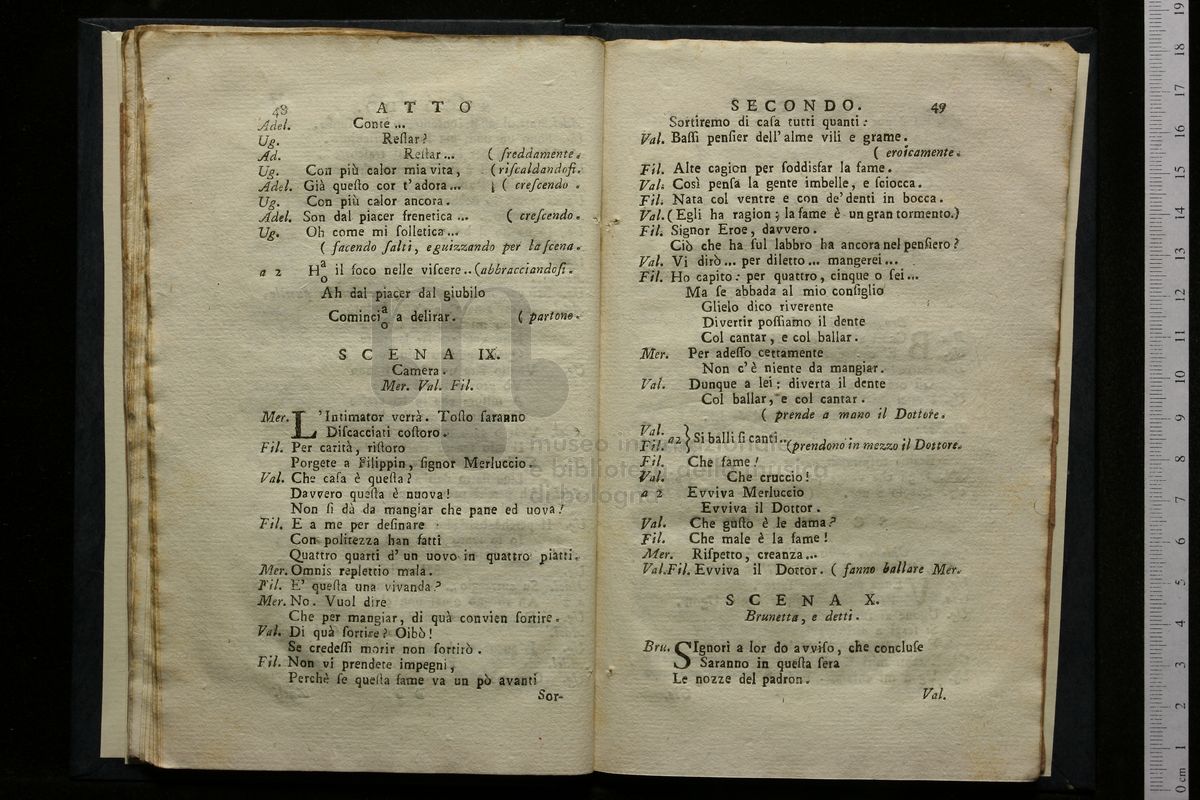 48 ATTO
Adel. Conte ...
Ug. Reſtar?
Ad. Reſtar ... ( freddamente.
Ug. Con più calor mia vita, (riſcaldandoſi.
Adel. Già queſto cor t' adora ... ( creſcendo .
Ug. Con più calor ancora.
Adel. Son dal piacer frenetica ... ( creſcendo.
Ug. Oh come mi ſolletica ...
( facendo ſalti, e guizzando per la ſcena.
a 2 H a/o il foco nelle viſcere .. (abbracciandoſi.
Ah dal piacer dal giubilo
Cominci a/o a delirar. ( partono.
SCENA IX.
Camera.
Mer. Val. Fil.
Mer. L'Intimator verrà. Toſto ſaranno
Diſcacciati coſtoro.
Fil. Per carità, riſtoro
Porgete a Filippin, ſignor Merluccio.
Val. Che caſa è queſta?
Davvero queſta è nuova!
Non ſi dà da mangiar che pane ed uova!
Fil. E a me per deſinare
Con politezza han fatti
Quattro quarti d' un uovo in quattro piatti.
Mer. Omnis replettio mala.
Fil. E' queſta una vivanda?
Mer. No. Vuol dire
Che per mangiar, di quà convien ſortire.
Val. Di quà ſortire? Oibò!
Se credeſſi morir non ſortirò.
Fil. Non vi prendete impegni,
Perchè ſe queſta fame va un pò avanti
Sor-
SECONDO. 49
Sortiremo di caſa tutti quanti:
Val. Baſſi penſier dell' alme vili e grame.
( eroicamente.
Fil. Alte cagion per ſoddisfar la fame.
Val. Così penſa la gente imbelle, e ſciocca.
Fil. Nata col ventre e con de' denti in bocca.
Val. (Egli ha ragion; la fame è un gran tormento.)
Fil. Signor Eroe, davvero.
Ciò che ha ſul labbro ha ancora nel penſiero?
Val. Vi dirò ... per diletto ... mangerei ...
Fil. Ho capito: per quattro, cinque o ſei ...
Ma ſe abbada al mio conſiglio
Glielo dico riverente
Divertir poſſiamo il dente
Col cantar, e col ballar.
Mer. Per adeſſo certamente
Non c' è niente da mangiar.
Val. Dunque a lei: diverta il dente
Col ballar, e col cantar.
( prende a mano il Dottore.
Val.
Fil. a 2 } Si balli ſi canti .. (prendono in mezzo il Dottore.
Fil. Che fame!
Val. Che cruccio!
a 2 Evviva Merluccio
Evviva il Dottor.
Val. Che guſto è le dama?
Fil. Che male è la fame!
Mer. Riſpetto, creanza ...
Val. Fil. Evviva il Dottor. ( fanno ballare Mer.
SCENA X.
Brunetta, e detti.
Bru. SIgnori a lor do avviſo, che concluſe
Saranno in queſta ſera
Le nozze del padron.
Val.
museo internazionale
e biblioteca della musica
di bologna
0 cm 1 2 3 4 5 6 7 8 9 10 11 12 13 14 15 16 17 18 19